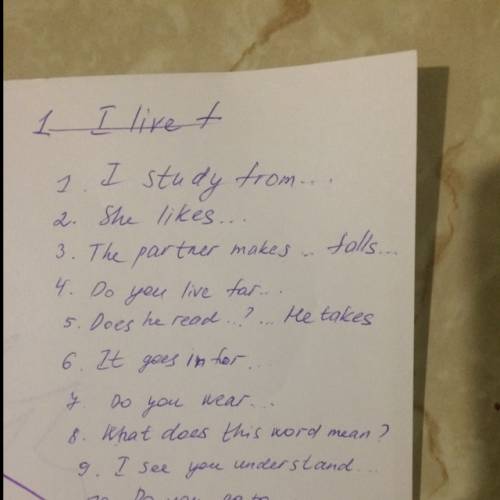 1 I live t
1. I study from...
2. She likes...
3. The partner makes .. falls...
4. Do you live far...
5. Does he read...? ... He takes
6. It goes in for...
7. Do you wear...
8. What does this word mean?
9. I see you understand...
10. Do you go to